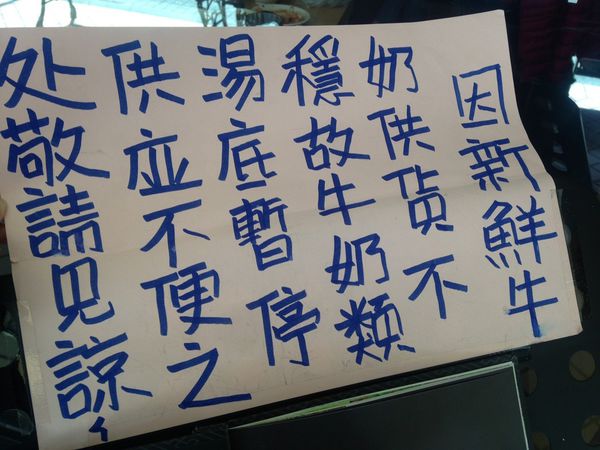 因新鮮牛
奶供貨不
穩故牛奶類
湯底暫停
供並不便之
处敬請見諒